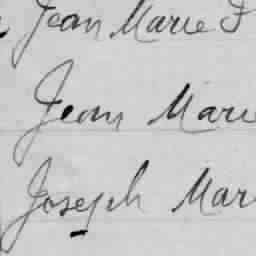 Jean Marie F
Jean Marie
Joseph Mar